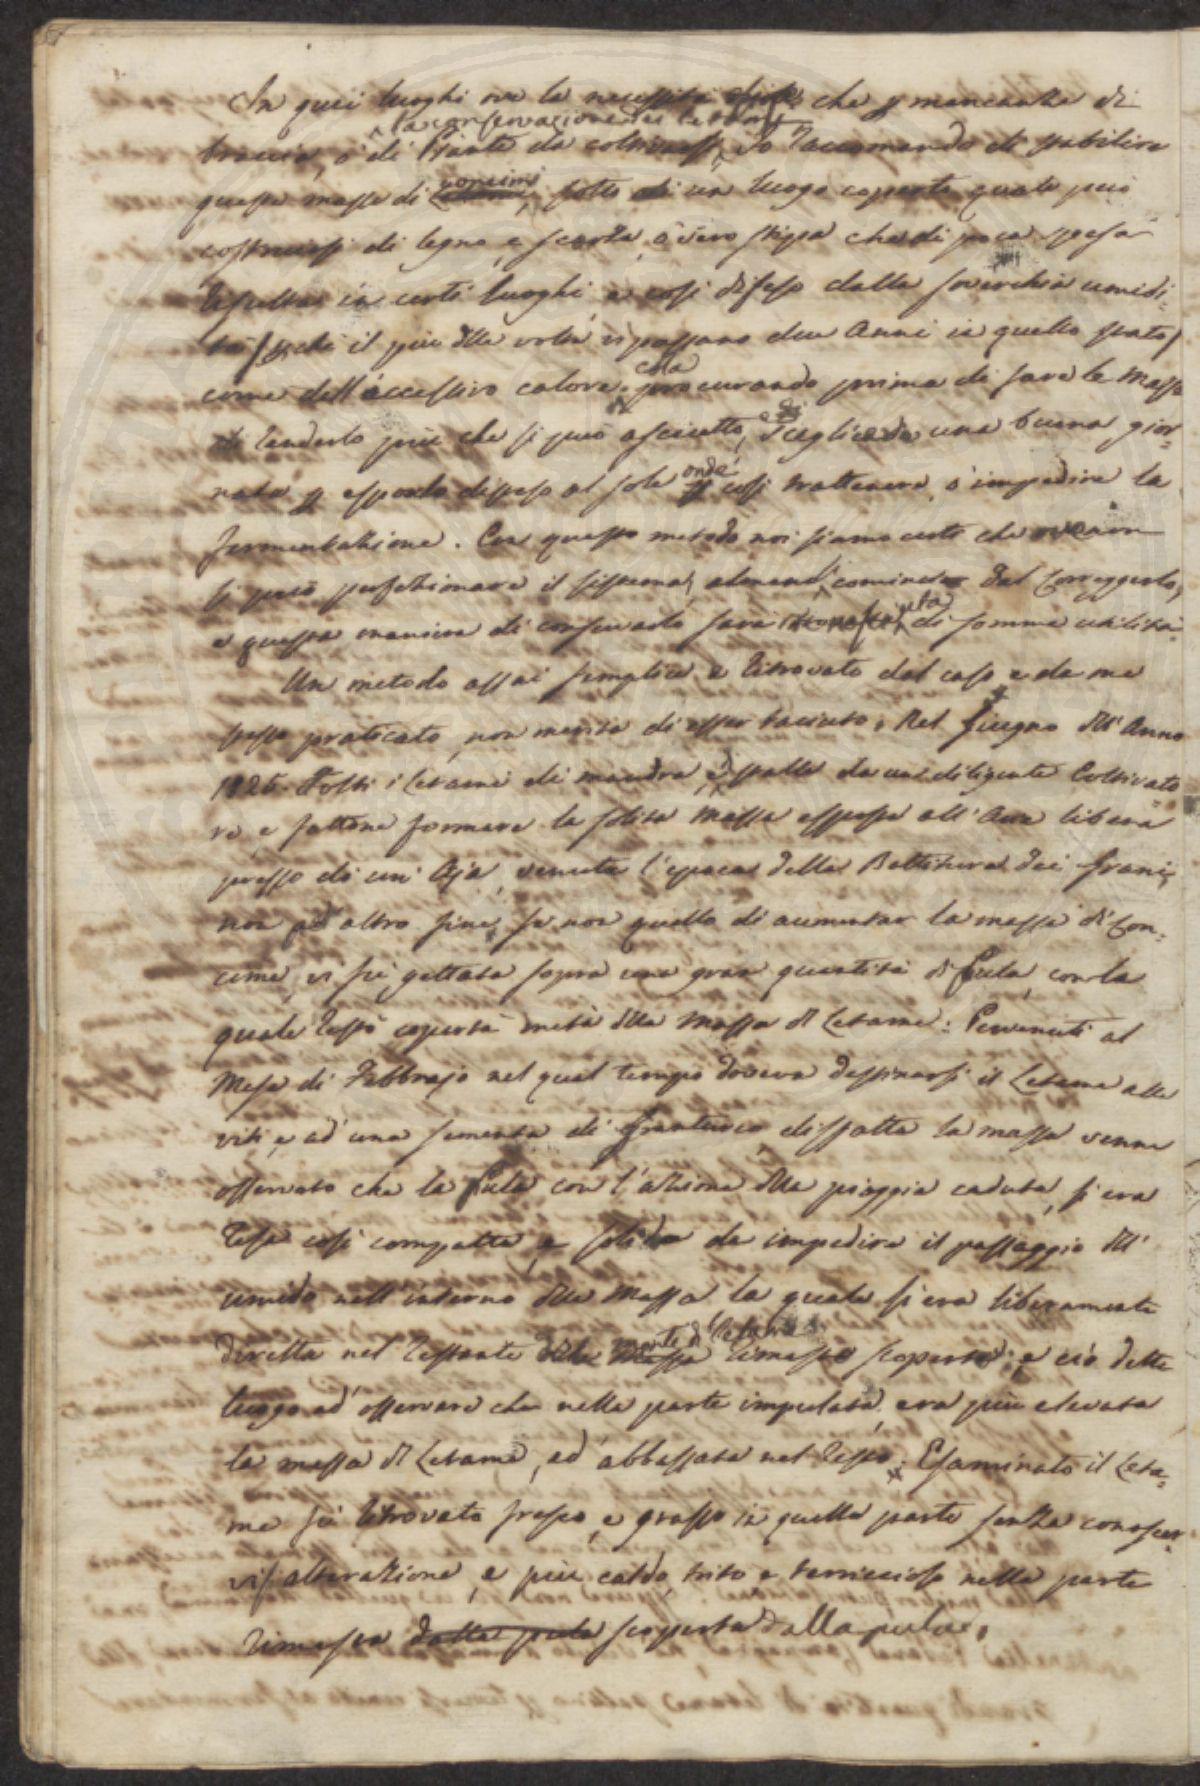 In quei luoghi ove la necessità che p mancanza di
la conservazione dei letami
braccia, o di Piante da coltivarsi, Io raccomando di stabilire
queste masse di concimi sotto di un luogo coperto quale può
costruirsi di legno, e scorza, o vero stipa che di poca spesa
risulta in certi luoghi, e così difeso dalla soverchia umidi-
tà (perchè il più delle volte vi passano due Anni in quello stato)
come dell'eccessivo calore, procurando prima di fare le masse
di renderlo più che si può asciutto, scegliendo una buona gior-
nata p esporlo disteso al sole onde così trattenere, o impedire la
fermentazione. Con questo metodo noi siamo certi che ove non
si può perfezionare il sistema, almeno cominciar dal correggerlo,
e questa maniera di conservarlo sarà di somma utilità.
Un metodo assai semplice e ritrovato dal caso e da me
stesso praticato, non merita di esser taciuto. Nel Giugno dell'Anno
1825. Tolti i Letami di mandra, e stalla da un diligente Coltivato-
re, e fattone formare la solita massa esposta all'Aria libera
presso di un'Aja, venuta l'epoca della Battitura dei Grani,
non ad altro fine, se non quello di aumentar la massa di con-
cime, vi fù gettata sopra una gran quantità di Pula, con la
quale restò coperta metà della Massa di Letame: Pervenuti al
Mese di Febbrajo nel qual tempo doveva destinarsi il Letame alle
viti, e ad una sementa di Granturco, disfatta la massa venne
osservato che la Pula con l'azione della pioggia caduta, si era
resa così compatta, e solida da impedire il passaggio dell'
umido nell'interno della Massa, la quale si era liberamente
monte di Letame
diretta nel restante della Massa rimasto scoperto; e ciò dette
luogo ad osservare che nella parte impulata, era più elevata
la massa di Letame, ed abbassata nel resto. Esaminato il Leta-
me fù ritrovato fresco, e grasso in quella parte senza conoscer-
visi alterazione, e più caldo, trito e terriccioso nella parte
rimasta dalla pula scoperta dalla pula.